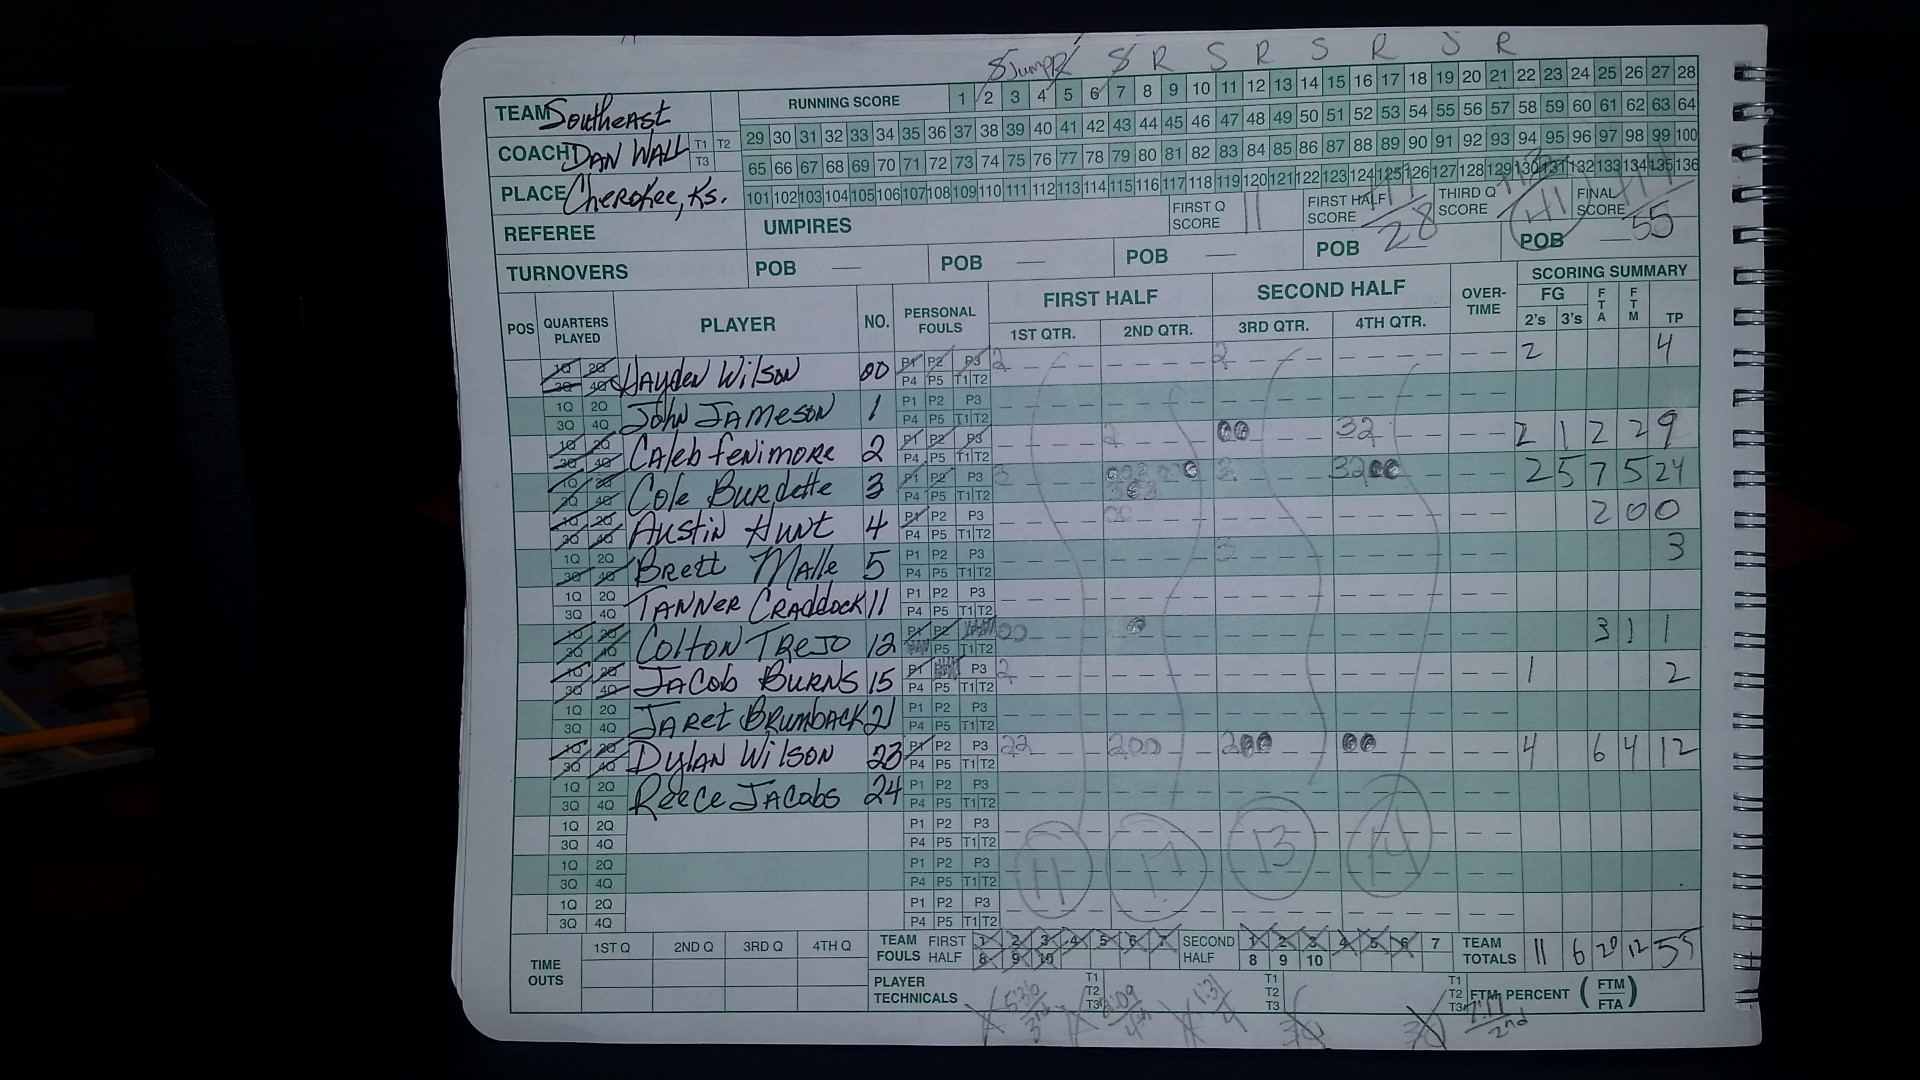 S Jump R S R S R S R S R
TEAM Southeast
RUNNING SCORE 1 2 3 4 5 6 7 8 9 10 11 12 13 14 15 16 17 18 19 20 21 22 23 24 25 26 27 28
29 30 31 32 33 34 35 36 37 38 39 40 41 42 43 44 45 46 47 48 49 50 51 52 53 54 55 56 57 58 59 60 61 62 63 64
COACH DAN WALL T1 T2 T3
65 66 67 68 69 70 71 72 73 74 75 76 77 78 79 80 81 82 83 84 85 86 87 88 89 90 91 92 93 94 95 96 97 98 99 100
PLACE Cherokee, Ks.
101 102 103 104 105 106 107 108 109 110 111 112 113 114 115 116 117 118 119 120 121 122 123 124 125 126 127 128 129 130 131 132 133 134 135 136
REFEREE UMPIRES FIRST Q SCORE 11 FIRST HALF SCORE 28 THIRD Q SCORE 41 FINAL SCORE 55
TURNOVERS POB — POB — POB — POB — POB —
POS QUARTERS PLAYED PLAYER NO. PERSONAL FOULS FIRST HALF SECOND HALF OVER-TIME SCORING SUMMARY
1ST QTR. 2ND QTR. 3RD QTR. 4TH QTR. FG 2's 3's FTA FTM TP
1Q 2Q 3Q 4Q Hayden Wilson 00 P1 P2 P3 P4 P5 T1 T2 2 2 2 4
1Q 2Q 3Q 4Q John Jameson 1 P1 P2 P3 P4 P5 T1 T2
1Q 2Q 3Q 4Q Caleb Fenimore 2 P1 P2 P3 P4 P5 T1 T2 2 00 32 2 1 2 2 9
1Q 2Q 3Q 4Q Cole Burdette 3 P1 P2 P3 P4 P5 T1 T2 3 2 3200 2 5 7 5 24
1Q 2Q 3Q 4Q Austin Hunt 4 P1 P2 P3 P4 P5 T1 T2 00 2 0 0
1Q 2Q 3Q 4Q Brett Malle 5 P1 P2 P3 P4 P5 T1 T2 3 3
1Q 2Q 3Q 4Q TANNER CRADDOCK 11 P1 P2 P3 P4 P5 T1 T2
1Q 2Q 3Q 4Q Colton Trejo 12 P1 P2 P5 T1 T2 00 0 3 1 1
1Q 2Q 3Q 4Q Jacob Burns 15 P1 P3 P4 P5 T1 T2 2 1 2
1Q 2Q 3Q 4Q Jaret Brumback 21 P1 P2 P3 P4 P5 T1 T2
1Q 2Q 3Q 4Q Dylan Wilson 23 P1 P2 P3 P4 P5 T1 T2 22 200 200 00 4 6 4 12
1Q 2Q 3Q 4Q Reece Jacobs 24 P1 P2 P3 P4 P5 T1 T2
1Q 2Q 3Q 4Q P1 P2 P3 P4 P5 T1 T2
1Q 2Q 3Q 4Q P1 P2 P3 P4 P5 T1 T2 11 17 13 14
1Q 2Q 3Q 4Q P1 P2 P3 P4 P5 T1 T2
TIME OUTS 1ST Q 2ND Q 3RD Q 4TH Q TEAM FOULS FIRST HALF 1 2 3 4 5 6 7 8 9 10 SECOND HALF 1 2 3 4 5 6 7 8 9 10 TEAM TOTALS 11 6 20 12 55
PLAYER TECHNICALS T1 T2 T3 T1 T2 T3 T1 T2 T3 FTM PERCENT (FTM/FTA)